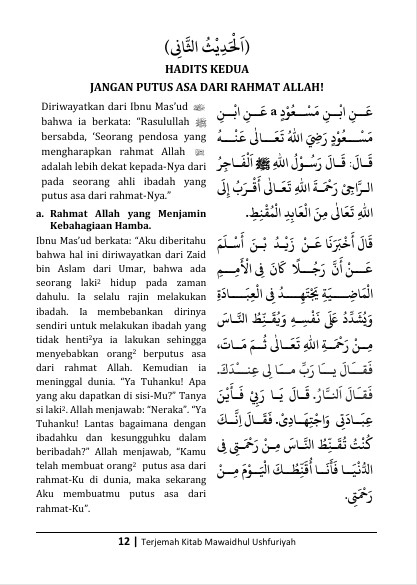 (اَلْحَدِيْثُ الثَّانِى)
HADITS KEDUA
JANGAN PUTUS ASA DARI RAHMAT ALLAH!
Diriwayatkan dari Ibnu Mas’ud ﷺ
bahwa ia berkata: “Rasulullah ﷺ
bersabda, ‘Seorang pendosa yang
mengharapkan rahmat Allah ﷻ
adalah lebih dekat kepada-Nya dari
pada seorang ahli ibadah yang
putus asa dari rahmat-Nya.”
a. Rahmat Allah yang Menjamin
Kebahagiaan Hamba.
Ibnu Mas’ud berkata: “Aku diberitahu
bahwa hal ini diriwayatkan dari Zaid
bin Aslam dari Umar, bahwa ada
seorang laki² hidup pada zaman
dahulu. Ia selalu rajin melakukan
ibadah. Ia membebankan dirinya
sendiri untuk melakukan ibadah yang
tidak henti²ya ia lakukan sehingga
menyebabkan orang² berputus asa
dari rahmat Allah. Kemudian ia
meninggal dunia. “Ya Tuhanku! Apa
yang aku dapatkan di sisi-Mu?” Tanya
si laki². Allah menjawab: “Neraka”. “Ya
Tuhanku! Lantas bagaimana dengan
ibadahku dan kesungguhku dalam
beribadah?” Allah menjawab, “Kamu
telah membuat orang² putus asa dari
rahmat-Ku di dunia, maka sekarang
Aku membuatmu putus asa dari
rahmat-Ku”.
عَـنِ ابْـنِ مَسْـعُوْدٍ a عَـنِ ابْـنِ
مَسْـعُوْدٍ رَضِيَ اللهُ تَعَـالٰى عَنْـهُ
قَالَ: قَالَ رَسُوْلُ اللهِ ﷺ اَلْفَاجِرُ
الـرَّاجِىْ رَحْمَةَ اللهِ تَعَالٰى أَقْرَبُ إِلَى
اللهِ تَعَالٰى مِنَ الْعَابِدِ الْمُقْنِطِ.
قَالَ أَخْبَرَنَا عَنْ زَيْدِ بْنِ أَسْلَمَ
عَنْ أَنَّ رَجُلًا كَانَ فِى الْأُمَمِ
الْمَاضِيَةِ يَجْتَهِدُ فِى الْعِبَادَةِ
وَيُشَدِّدُ عَلٰى نَفْسِهِ وَيُقَنِّطُ النَّاسَ
مِنْ رَحْمَةِ اللهِ تَعَالٰى ثُمَّ مَاتَ،
فَقَالَ يَا رَبِّ مَا لِى عِنْدَكَ.
فَقَالَ اَلنَّارُ. قَالَ يَا رَبِّيْ فَأَيْنَ
عِبَادَتِى وَاجْتِهَادِىْ. فَقَالَ إِنَّكَ
كُنْتُ تُقَنِّطُ النَّاسَ مِنْ رَحْمَتِى فِى
الدُّنْيَا فَأَنَا أُقَنِّطُكَ الْيَوْمَ مِنْ
رَحْمَتِى.
12 | Terjemah Kitab Mawaidhul Ushfuriyah